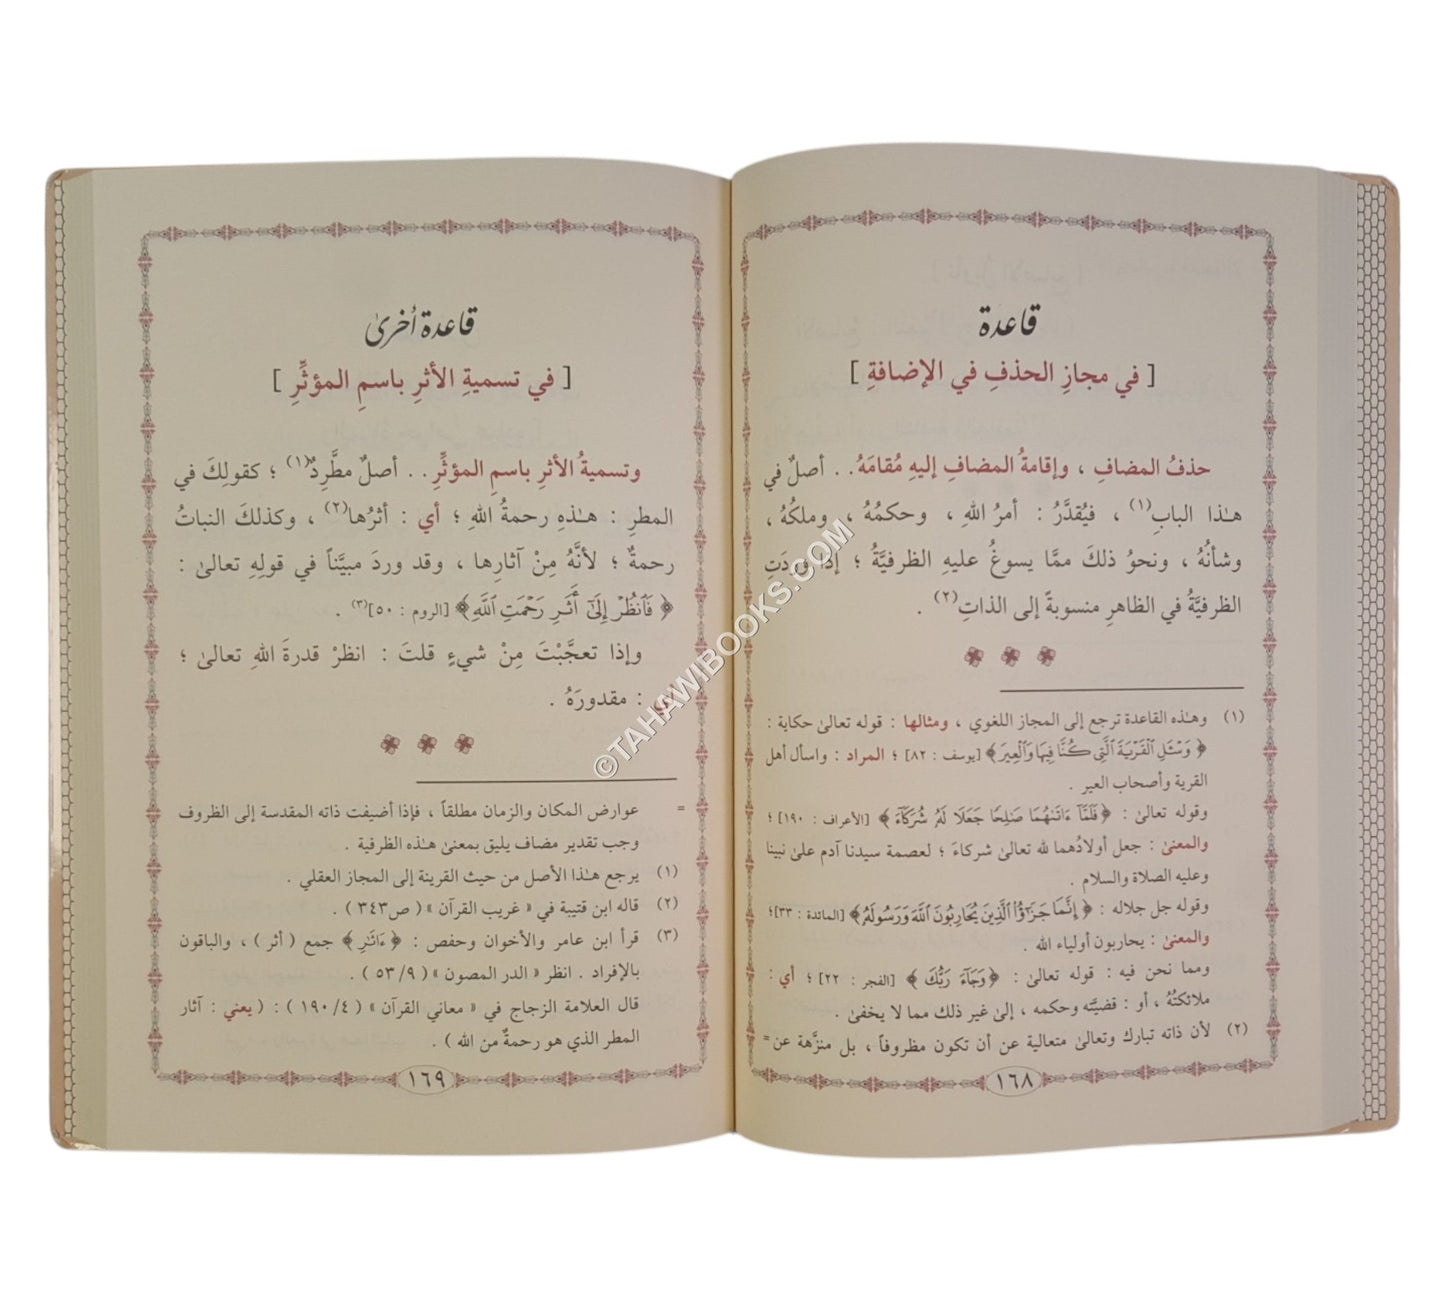 قاعدة
[ في مجازِ الحذفِ في الإضافةِ ]
حذفُ المضافِ ، وإقامةُ المضافِ إليهِ مُقامَهُ . . أصلٌ في
هـٰذا البابِ(١) ، فيُقدَّرُ : أمرُ اللهِ ، وحكمُهُ ، وملكُهُ ،
وشأنُهُ ، ونحوُ ذلكَ ممَّا يسوغُ عليهِ الظرفيَّةُ ؛ إذا وردَتِ
الظرفيَّةُ في الظاهرِ منسوبةً إلى الذاتِ(٢) .
(١) وهـٰذه القاعدة ترجع إلى المجاز اللغوي ، ومثالها : قوله تعالىٰ حكاية :
﴿ وَسْـَٔلِ ٱلْقَرْيَةَ ٱلَّتِى كُنَّا فِيهَا وَٱلْعِيرَ ﴾ [يوسف : ٨٢] ؛ المراد : واسأل أهل
القرية وأصحاب العير .
وقوله تعالىٰ : ﴿ فَلَمَّآ ءَاتَىٰهُمَا صَٰلِحًا جَعَلَا لَهُۥ شُرَكَآءَ ﴾ [الأعراف : ١٩٠] ؛
والمعنىٰ : جعل أولادُهما لله تعالىٰ شركاءَ ؛ لعصمة سيدنا آدم علىٰ نبينا
وعليه الصلاة والسلام .
وقوله جل جلاله : ﴿ إِنَّمَا جَزَٰٓؤُا۟ ٱلَّذِينَ يُحَارِبُونَ ٱللَّهَ وَرَسُولَهُۥ ﴾ [المائدة : ٣٣] ؛
والمعنىٰ : يحاربون أولياء الله .
ومما نحن فيه : قوله تعالىٰ : ﴿ وَجَآءَ رَبُّكَ ﴾ [الفجر : ٢٢] ؛ أي :
ملائكتُهُ ، أو : قضيَّته وحكمه ، إلىٰ غير ذلك مما لا يخفىٰ .
(٢) لأن ذاته تبارك وتعالىٰ متعالية عن أن تكون مظروفاً ، بل منزَّهة عن =
١٦٨
قاعدة أخرىٰ
[ في تسميةِ الأثرِ باسمِ المؤثِّرِ ]
وتسميةُ الأثرِ باسمِ المؤثِّرِ . . أصلٌ مطَّرِدٌ(١) ؛ كقولِكَ في
المطرِ : هـٰذهِ رحمةُ اللهِ ؛ أي : أثرُها(٢) ، وكذلكَ النباتُ
رحمةٌ ؛ لأنَّهُ مِنْ آثارِها ، وقد وردَ مبيَّناً في قولِهِ تعالىٰ :
﴿ فَٱنظُرْ إِلَىٰٓ أَثَرِ رَحْمَتِ ٱللَّهِ ﴾ [الروم : ٥٠](٣) .
وإذا تعجَّبْتَ مِنْ شيءٍ قلتَ : انظرْ قدرةَ اللهِ تعالىٰ ؛
أي : مقدورَهُ .
= عوارض المكان والزمان مطلقاً ، فإذا أضيفت ذاته المقدسة إلى الظروف
وجب تقدير مضاف يليق بمعنىٰ هـٰذه الظرفية .
(١) يرجع هـٰذا الأصل من حيث القرينة إلى المجاز العقلي .
(٢) قاله ابن قتيبة في « غريب القرآن » ( ص٣٤٣ ) .
(٣) قرأ ابن عامر والأخوان وحفص : ﴿ ءَاثَٰرِ ﴾ جمع ( أثر ) ، والباقون
بالإفراد . انظر « الدر المصون » ( ٥٣/٩ ) .
قال العلامة الزجاج في « معاني القرآن » ( ١٩٠/٤ ) : ( يعني : آثار
المطر الذي هو رحمةٌ من الله ) .
١٦٩
©TAHAWIBOOKS.COM